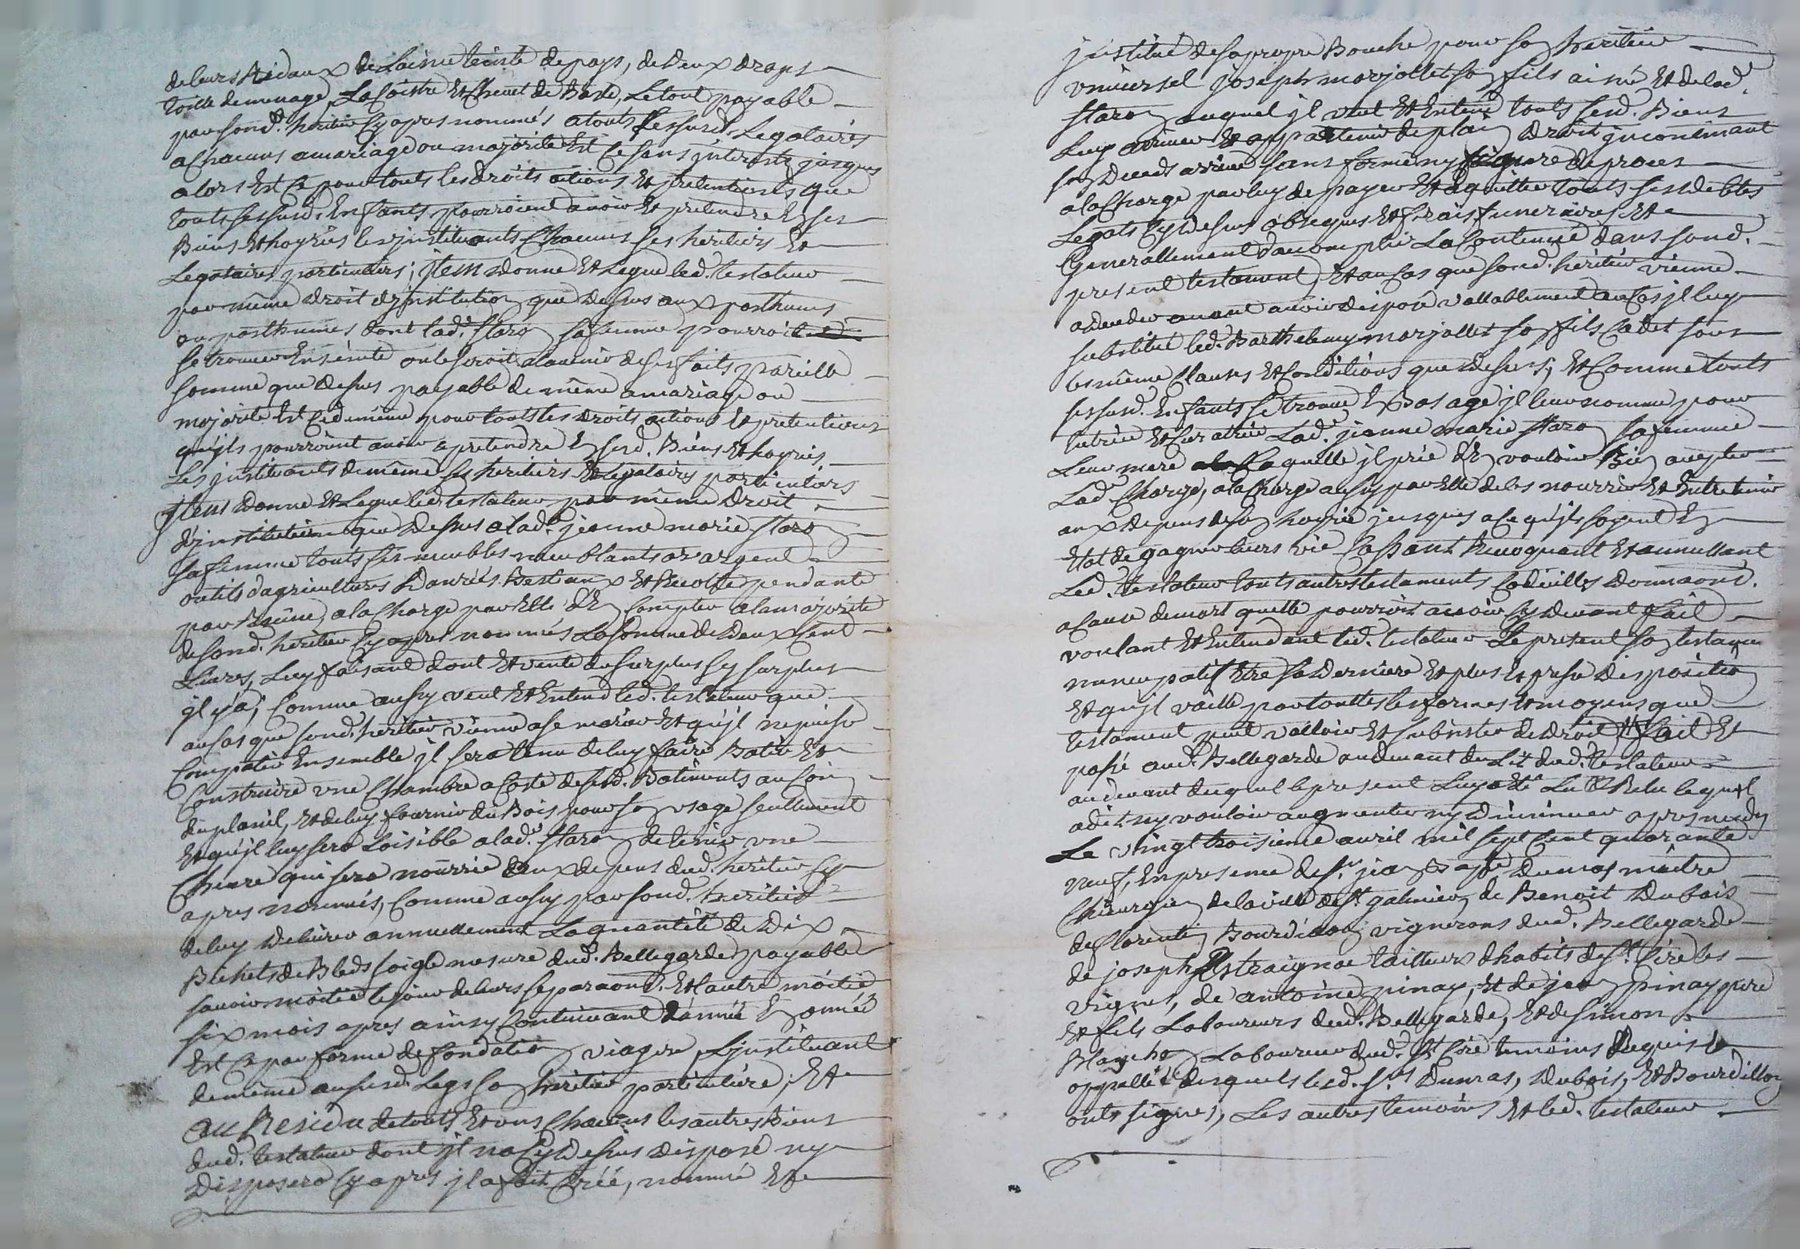 de leurs Ridaux de Laine teinte de pays, de deux draps
toille de menage, La Coistre Et Chevet de Baste, Le tout payable
par sond. heritier Cy apres nommés a touts sessusd. Legataires
a Chacuns a mariage ou majorité Et Ce sans interests jusques
alors Et Ce pour touts les droits actions Et pretentions que
touts sessusd. Enfants pourroient avoir Et pretendre En ses
Biens Et hoyries les instituants Chacuns ses heritiers Et
Legataires particuliers; Item donne Et Legue led. testateur
par même droit d'institution que dessus aux posthumes
ou posthumes dont lad. Staro sa femme pourroit
se trouver Enseinte ou le seroit alavenir de ses faits pareille
somme que dessus payable de même a mariage ou
majorité Et Ce de même pour touts les droits actions Et pretentions
qu'ils pourroient avoir a pretendre En sesd. Biens Et hoyries
Les instituants de même ses heritiers Et Legataires particuliers
Item donne Et Legue led. testateur par même droit
d'institution que dessus a lad. jeanne marie Staro
sa femme touts ses meubles meublants or argent
outils d'agricultures Danrées Bestiaux Et Recolte pendante
par Racine, a la Charge par Elle d'En Compter a la majorité
de sond. heritier Cy apres nommés La somme de deux Cent
Livres, Luy faisant dont Et vente du surplus sy surplus
il y a; Comme aussy veut Et Entend led. testateur que
au Cas que sond. heritier vienne a se marier Et qu'il ne puisse
Compatir Ensemble il sera tenu de luy faire Batir Et
Construire vne Chambre a Coste de sesd. Batiments au Coin
du plassil, Et de luy fournir du Bois pour son vsage seullement
Et qu'il luy sera Loisible a lad. Staro de tenir vne
Chevre qui sera nourrie aux depens dud. heritier Cy
apres nommés, Comme aussy par sond. heritier
de luy delivrer annuellement La quantité de dix
Bichets de Bled soigle mesure dud. Bellegarde payable
sçavoir moitie le jour de leurs separaon. Et l'autre moitie
six mois apres ainsy Continuant d'année En année
Et Ce par forme de fondation viagere L'instituant
de même aususd. Legs son heritiere particuliere; Et
au Residu de touts Et vns Chacuns les autres Biens
dud. testateur dont il n'a Cy dessus disposé ny
disposera Cy apres il a fait Créé, nommé Et
jnstitué de sa propre Bouche pour son heritier
vniversel joseph marjollet son fils ainé Et de lad.
Staro auquel il veut Et Entend touts sesd. Biens
Luy arriver Et appartenir de plain droit incontinant
son deceds arrivé sans forme ny figure de proces
a la Charge par luy de payer Et aquitter touts ses debtes
Legats Cy dessus obseques Et frais funeraires, Et
Generallement d'accomplir La Contenue dans sond.
present testament, Et au Cas que sond. heritier vienne
a deceder avant avoir disposé vallablement au Cas il luy
substitue led. Barthelemy marjollet son fils Cadet sous
les même Clauses Et Conditions que dessus; Et Comme touts
sessusd. Enfants se trouve En bas age il leur nomme pour
tutrice Et Curatrice Lad. jeanne marie Staro sa femme
Leur mere laquelle il prie d'En vouloir Bien accepter
Lad. Charge, a la Charge aussy par Elle de les nourrir Et Entretenir
aux depens de son hoyrie jusques a Ce qu'ils soyent En
Etat de gagner leurs vie Cassant Revoquant Et annullant
Led. testateur touts autres testaments Codicilles donnaons.
a Cause de mort quelle pourroit avoir Cy devant fait
voulant Et Entendant led. testateur Le present son testament
nuncupatif Etre sa derniere Et plus Expresse disposition
Et qu'il vaille par touttes les formes Et moyens que
testament peut valloir Et subsister de droit fait Et
passé aud. Bellegarde audevant du Lit dud. testateur
audevant duquel le present Luy a Eté Lu Et Relu lequel
a dit ny vouloir augmenter ny diminuer apres midy
Le vingt troisieme avril mil sept Cent quarante
neuf, En presence de sr. jean Bapte. dumas maitre
Chirurgien de la ville de St. galmier, de Benoit dubois
de Florent Bourdillon vignerons dud. Bellegarde
de joseph Estraignac tailleurs d'habits de St. Cire les
vignes, de antoine pinay, Et de jean pinay pere
Et fils Laboureurs dud. Bellegarde, Et de simon
Blanche Laboureur dud. St. Cire temoins Requis Et
appallés desquels lesd. srs. dumas, dubois, Et Bourdillon
onts signés, Les autres temoins Et led. testateur